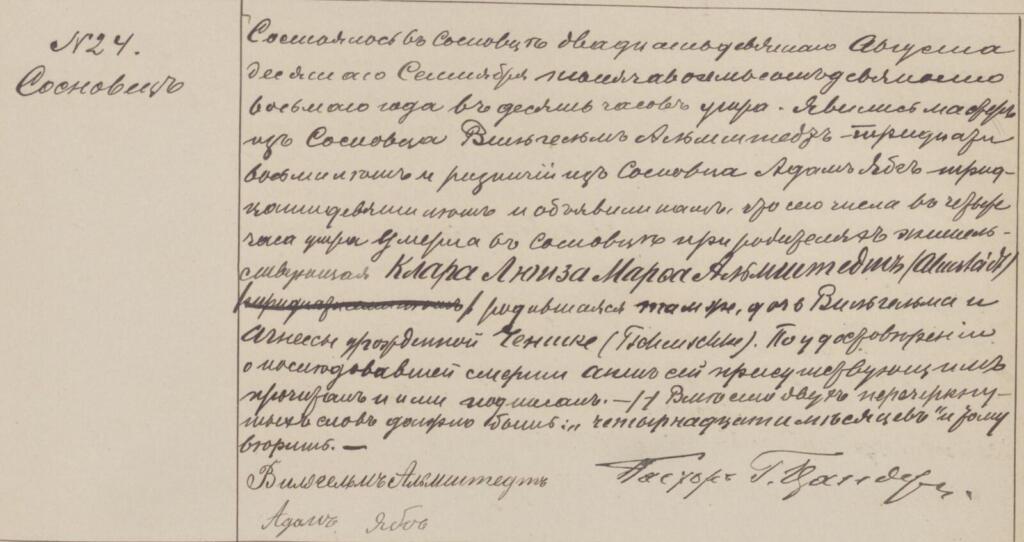 N 24.
Сосновецъ
Состоялось въ Сосновцѣ двадцать девятаго Августа
десятаго Сентября тысяча восемьсотъ девяносто
восьмаго года въ десять часовъ утра. Явились мастеръ
изъ Сосновца Вильгельмъ Альмштедтъ тридцати
восьми лѣтъ и рѣзничій изъ Сосновца Адамъ Ябсъ трид-
цати девяти лѣтъ и объявили намъ, что сего числа въ четыре
часа утра умерла въ Сосновцѣ при родителяхъ житель-
ствующая Клара Люиза Марѳа Альмштедтъ (Almstädt)
родившаяся тамже, дочь Вильгельма и
Агнесы урожденной Чешке (Tschuschke). По удостовѣреніи
о послѣдовавшей смерти актъ сей присутствующимъ
прочитанъ и ими подписанъ. — // Вмѣсто двухъ перечеркну-
тыхъ словъ должно быть: "четырнадцати мѣсяцевъ" и тому
вторить. —
Вильгельмъ Альмштедтъ
Пасторъ Г. Цандеръ.
Адамъ Ябсъ